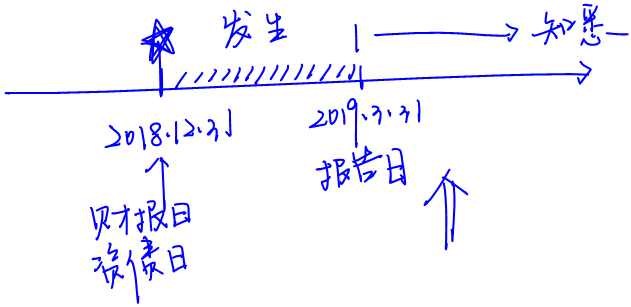 发生
知悉
2018.12.31
2019.3.31
报告日
财报日
资债日